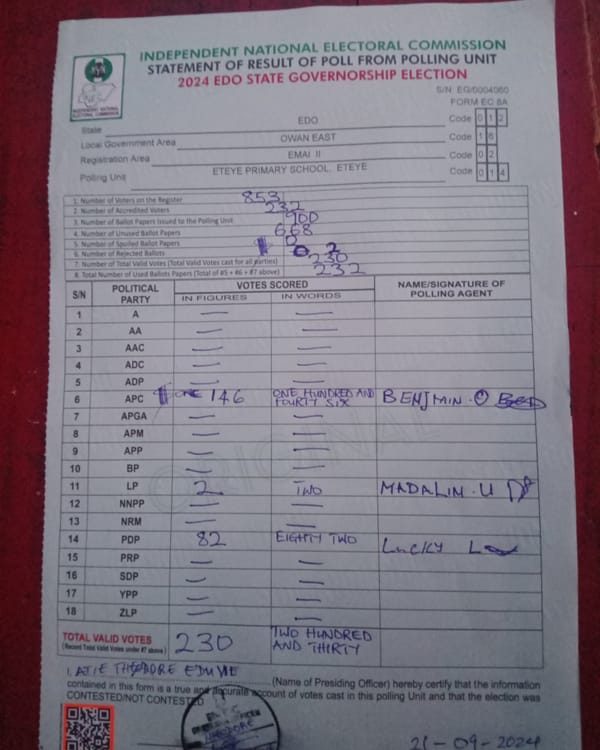 INDEPENDENT NATIONAL ELECTORAL COMMISSION
STATEMENT OF RESULT OF POLL FROM POLLING UNIT
2024 EDO STATE GOVERNORSHIP ELECTION
INDEPENDENT NATIONAL ELECTORAL COMMISSION
S/N EG/0004060
FORM EC 8A
State EDO Code 0 1 2
Local Government Area OWAN EAST Code 1 6
Registration Area EMAI II Code 0 2
Polling Unit ETEYE PRIMARY SCHOOL, ETEYE Code 0 1 4
1. Number of Voters on the Register 853
2. Number of Accredited Voters 232
3. Number of Ballot Papers Issued to the Polling Unit 900
4. Number of Unused Ballot Papers 668
5. Number of Spoiled Ballot Papers 0
6. Number of Rejected Ballots 2
7. Number of Total Valid Votes (Total Valid Votes cast for all parties) 230
8. Total Number of Used Ballots Papers (Total of #5 + #6 + #7 above) 232
S/N POLITICAL PARTY VOTES SCORED NAME/SIGNATURE OF POLLING AGENT
IN FIGURES IN WORDS
1 A — —
2 AA — —
3 AAC — —
4 ADC — —
5 ADP — —
6 APC 146 ONE HUNDRED AND FOURTY SIX BENJMIN. O
7 APGA — —
8 APM — —
9 APP — —
10 BP — —
11 LP 2 TWO MADALIN. U
12 NNPP — —
13 NRM — —
14 PDP 82 EIGHTY TWO LUCKY
15 PRP — —
16 SDP — —
17 YPP — —
18 ZLP — —
TOTAL VALID VOTES 230 TWO HUNDRED AND THIRTY
(Record Total Valid Votes under #7 above)
I, ATIE THEODORE (Name of Presiding Officer) hereby certify that the information
contained in this form is a true and accurate account of votes cast in this polling Unit and that the election was
CONTESTED/NOT CONTESTED
21-09-2024
ORIGINAL